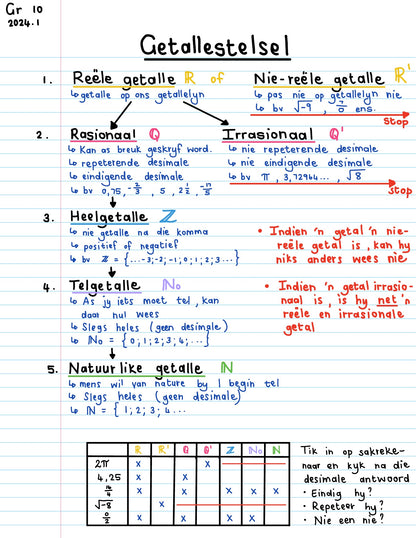 Gr 10
2024.1
Getallestelsel
1. Reële getalle ℝ of Nie-reële getalle ℝ'
↳ getalle op ons getallelyn
↳ pas nie op getallelyn nie
↳ bv √-9 , 7/0 ens.
Stop
2. Rasionaal ℚ
↳ Kan as breuk geskryf word.
↳ repeterende desimale
↳ eindigende desimale
↳ bv 0,75, -2/3 , 5 , 2 1/2 ,
Irrasionaal ℚ'
↳ nie repeterende desimale
↳ nie eindigende desimale
↳ bv π , 3,72964... , √8
Stop
3. Heelgetalle ℤ
↳ nie getalle na die komma
↳ positief of negatief
↳ bv ℤ = {...-3;-2;-1;0;1;2;3...}
• Indien 'n getal 'n nie-
reële getal is, kan hy
niks anders wees nie
4. Telgetalle ℕ₀
↳ As jy iets moet tel, kan
daar nul wees
↳ Slegs heles (geen desimale)
↳ ℕ₀ = {0;1;2;3;4;...}
• Indien 'n getal irrasio-
naal is, is hy net 'n
reële en irrasionale
getal
5. Natuurlike getalle ℕ
↳ mens wil van nature by 1 begin tel
↳ Slegs heles (geen desimale)
↳ ℕ = { 1;2;3;4...
ℝ ℝ' ℚ ℚ' ℤ ℕ₀ ℕ
2π x x
4,25 x x
x x x x x
√-8 x
0/2 x x x x
Tik in op sakreke-
naar en kyk na die
desimale antwoord
• Eindig hy?
• Repeteer hy?
• Nie een nie?